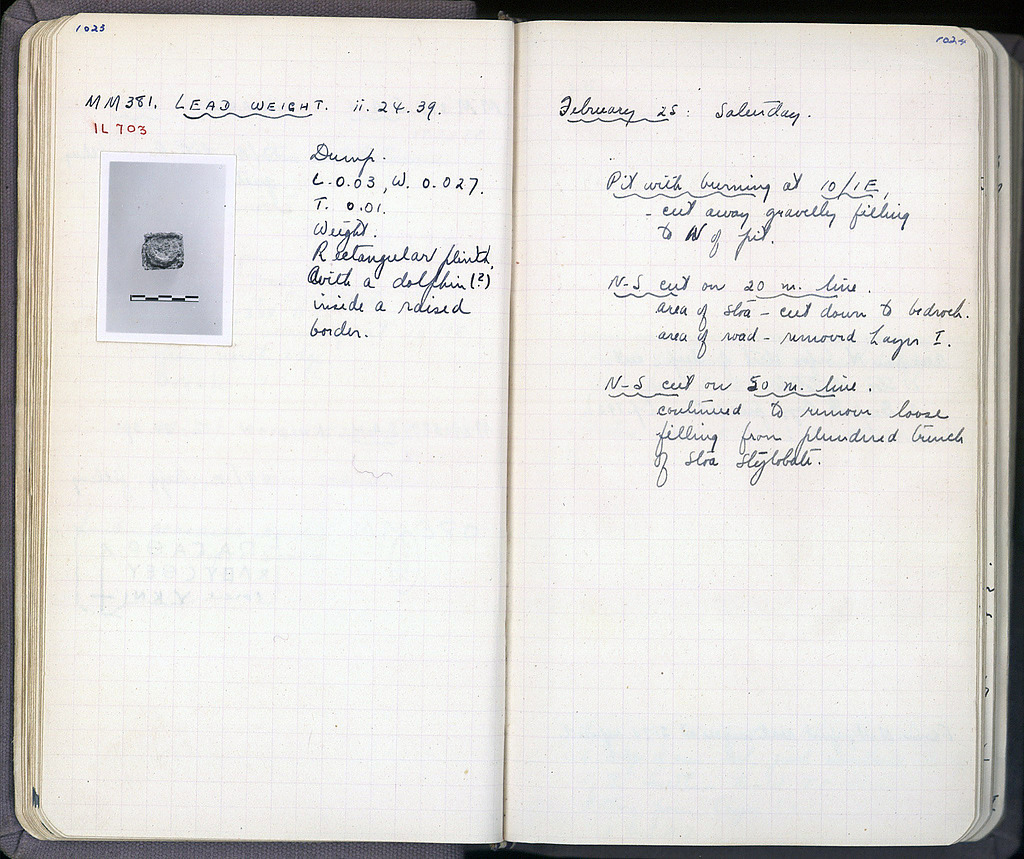 1023
MM 381. LEAD WEIGHT. ii. 24. 39.
IL 703
Dump.
L. 0.03, W. 0.027.
T. 0.01.
Weight.
Rectangular plinth,
with a dolphin (?)
inside a raised
border.
1024
February 25: Saturday.
Pit with burning at 10/1E,
- cut away gravelly filling
to N of pit.
N-S cut on 20 m. line.
area of Stoa - cut down to bedrock.
area of road - removed Layer I.
N-S cut on 50 m. line.
continued to remove loose
filling from plundered trench
of Stoa Stylobate.